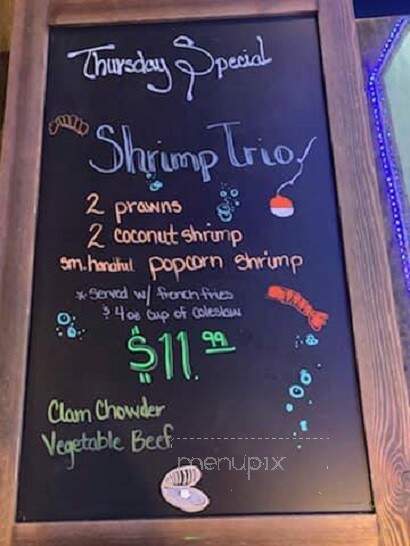 Thursday Special
Shrimp Trio
2 prawns
2 coconut shrimp
sm. handful popcorn shrimp
* Served w/ french fries
& 4 oz cup of coleslaw
$11.99
Clam Chowder
Vegetable Beef
menupix